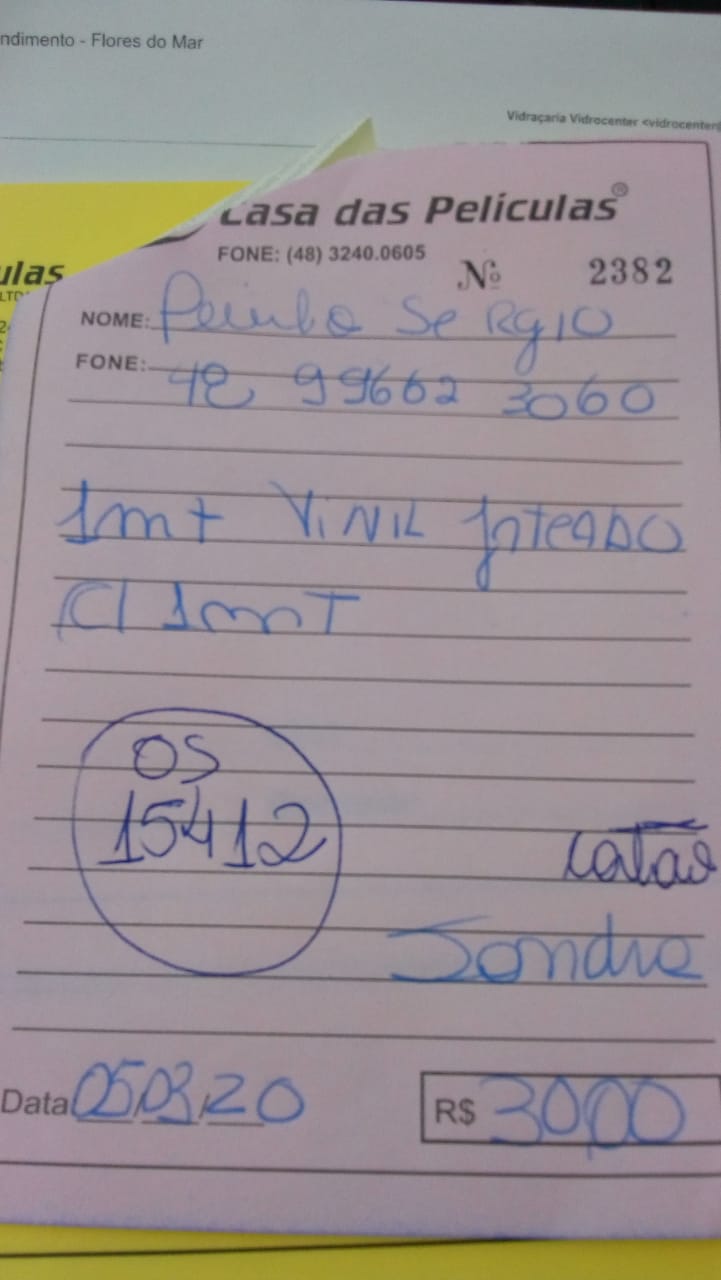 ndimento - Flores do Mar
Vidraçaria Vidrocenter <vidrocenter@
Casa das Películas®
FONE: (48) 3240.0605
Nº 2382
ulas
LTD
NOME: Paulo Sergio
FONE: 48 99662 3060
1mt VINIL Jateado
C/ 1mt
OS
15412
Data 05,03,20
R$ 30,00